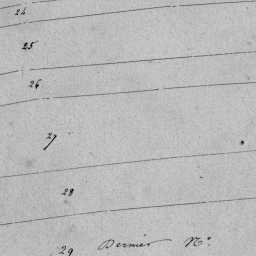 24
25
26
27
28
29 Dernier N.°